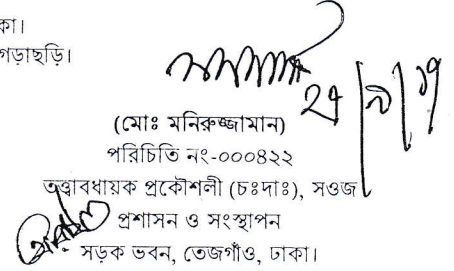 কা।
গড়াছড়ি।
(মোঃ মনিরুজ্জামান)
পরিচিতি নং-০০০৪২২
তত্ত্বাবধায়ক প্রকৌশলী (চঃদাঃ), সওজ
প্রশাসন ও সংস্থাপন
সড়ক ভবন, তেজগাঁও, ঢাকা।